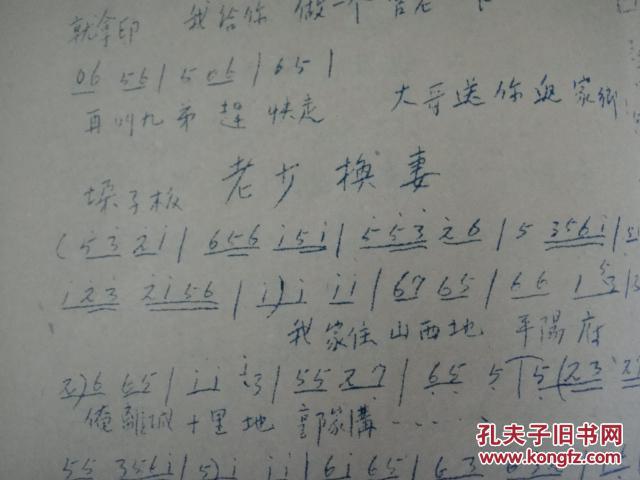 就拿印 我给你 做一个
06 56 | 5 06 | 6 5 |
再叫九弟 赶快走 大哥送你返家乡
老少换妻
梆子板
( 5 3 2 i | 6 5 6 i 5 i | 5 5 3 2 6 | 5 3 5 6 i |
i 2 3 2 i 5 6 | i ) i i i | 6 7 6 5 | 6 6 i 3
我家住 山西地 平陽府
2 ) 6 6 5 | i i i 3 | 5 5 2 7 | 6 5 5 | 5 ( 2 3 2 i
俺離城 十里地 家溝 . . . . .
5 5 3 5 6 i | 5 ) i i i | 6 i 6 5 | 6 3
孔夫子旧书网
www.kongfz.com